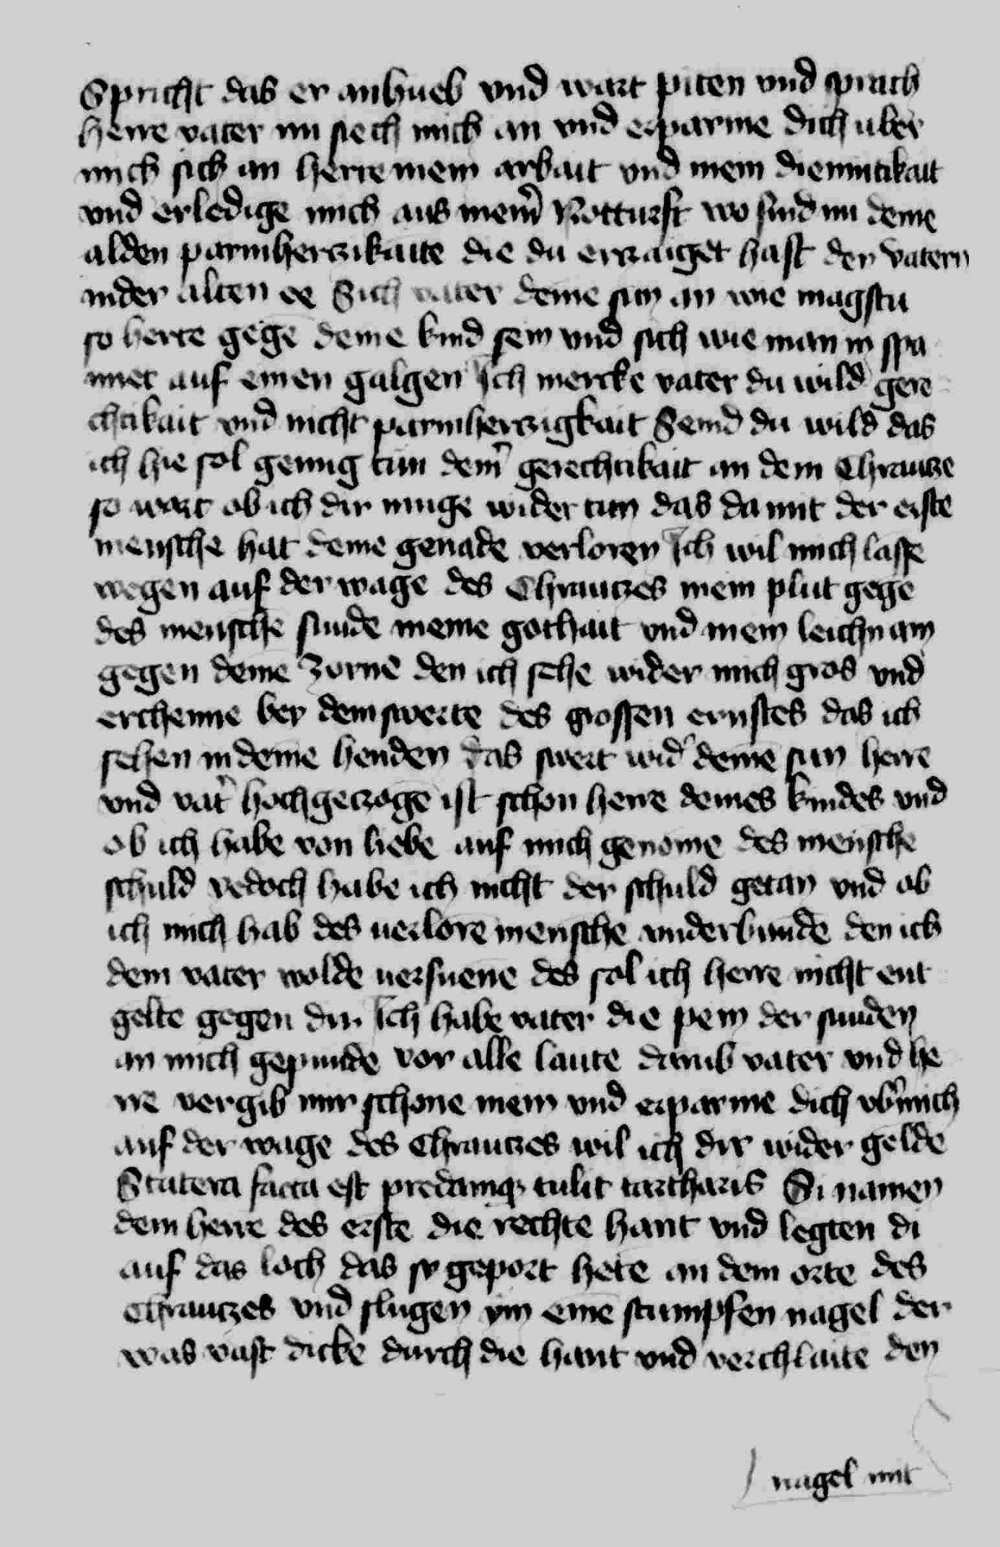 Spricht das er anhueb vnd wart piten vnd sprach
herre vater nu siech mich an vnd erparme dich uber
mich sich an herre mein arbait vnd mein diemutikait
vnd erledige mich aus meīr Notturft wo sind nu deine
alden parmherczikaite die du erczaiget hast den vatern
in der alten ee Sich vater deine sun an wie magstu
so herte gege deine kind sein vnd sich wie man in spa
nnet auf einen galgen Ich mercke vater du wild gere
chtikait vnd nicht parmherczigkait Seind du wild das
ich hie sol genug tun deinʼ gerechtikait an dem Chrautze
so wart ob ich dir muge wider tun das da mit der erste
mensche hat deine genade verloren Ich wil mich lasse
wegen auf der wage des Chrautzes mein plut gege
des mensche sunde meine gothait vnd mein leichnam
gegen deine zorne den ich sehe wider mich gros vnd
erchenne bey dem swerte des grossen ernstes das ich
sehen in deine henden das swert widʼ deine sun herre
vnd vatʼ hochgeczoge ist schon herre deines kindes vnd
ob ich habe von liebe auf mich genome des mensche
schuld yedoch habe ich nicht der schuld getan vnd ob
ich mich hab des uerlore mensche vnderbunde den ich
dem vater wolde uersuene des sol ich herre nicht ent
gelte gegen dir Ich habe vater die pein der sunden
an mich gepunde vor alle laute darub vater vnd he
rre vergib mir schone mein vnd erparme dich vbʼ mich
auf der wage des Chrautzes wil ich dir wider gelde
Statera facta est predamqꝫ tulit tartharis Si namen
dem herre des erste die rechte hant vnd legten di
auf das loch das sy geport hete an dem orte des
Chrautzes vnd slugen ym eine stumpfen nagel der
was vast dicke durch die hant vnd verchlaite den
nagel mit